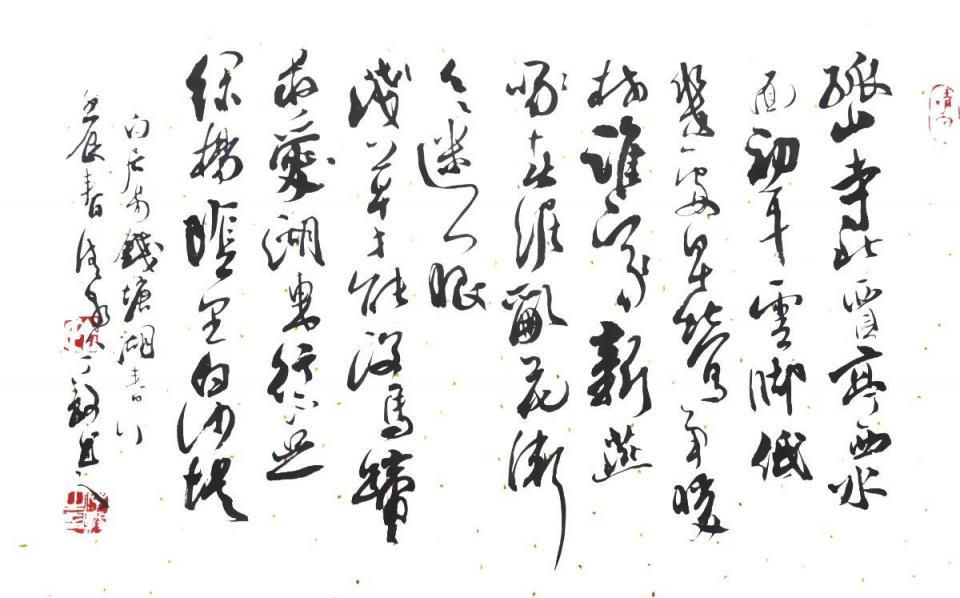 孤山寺北賈亭西水
面初平雲腳低
幾處早鶯爭暖
树誰家新燕
啄春泥亂花漸
欲迷人眼
淺草才能沒馬蹄
最愛湖東行不足
綠楊陰里白沙堤
白居易錢塘湖春行
壬辰春